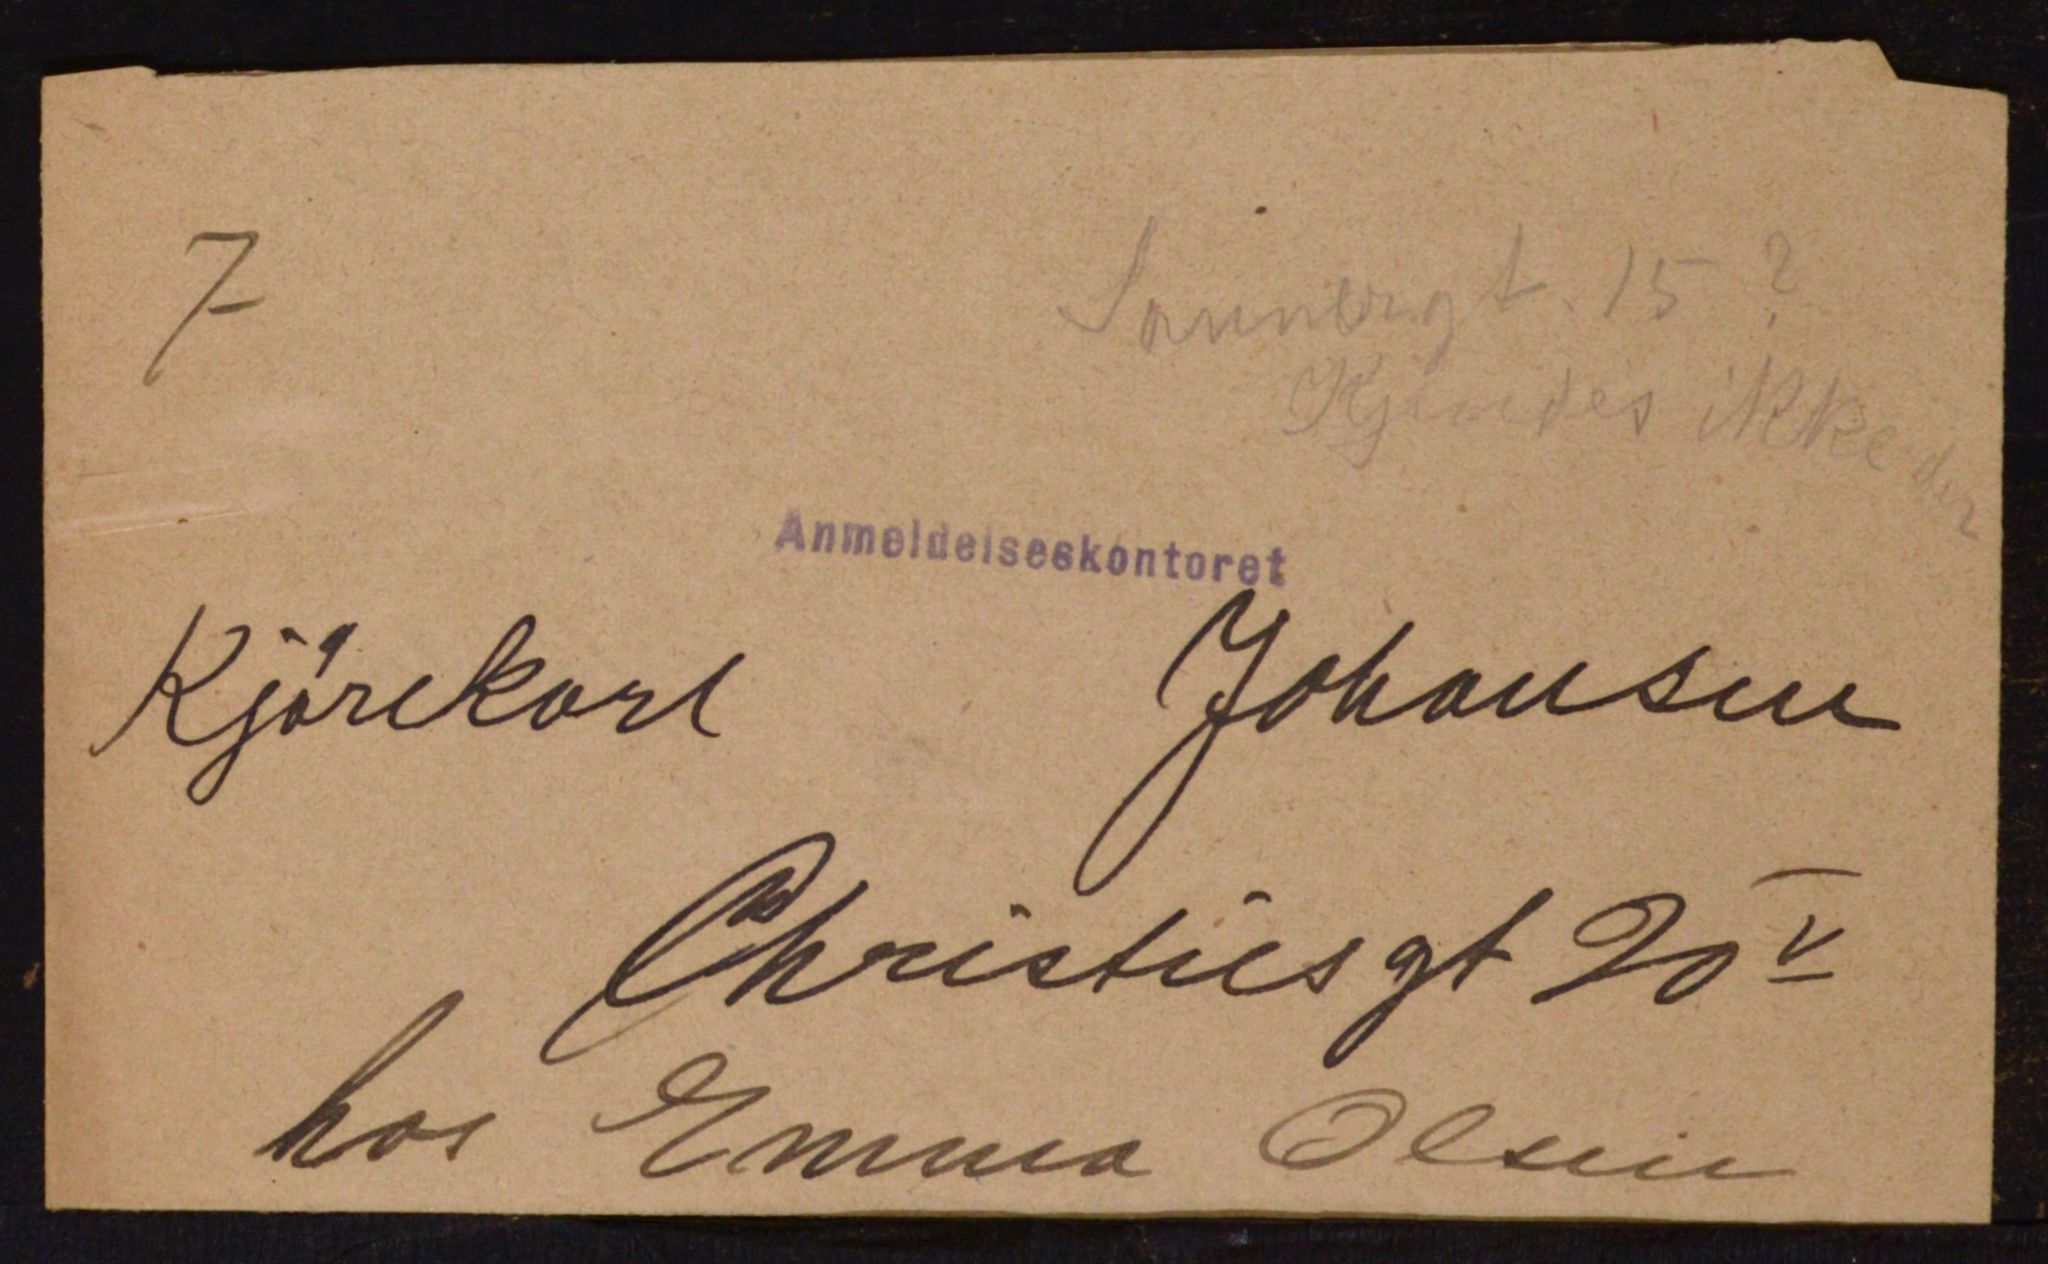 7
Sannergt. 15 ?
Kjendes ikke der
Anmeldelseskontoret
Kjörekarl Johansen
Christiesgt 20 V
hos Emma Olsen